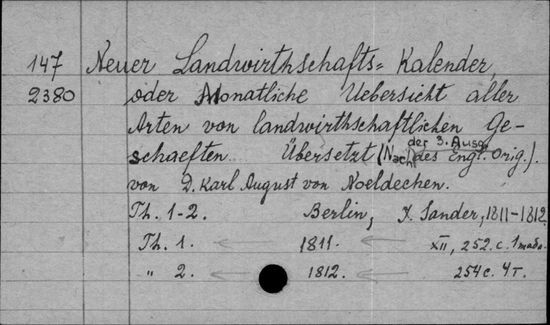 147 Neuer Landwirthschafts= Kalender,
2380 oder Monatliche Uebersicht aller
Arten von landwirthschaftlichen Ge-
schaeften. Übersetzt (Nach der 3. Ausg. des Engl. Orig.).
von D. Karl August von Noeldechen.
Th. 1-2. Berlin, J. Sander, 1811-1812.
Th. 1. 1811. XII, 252. c. 1 табл.
" 2. 1812. 254 c. 4 т.